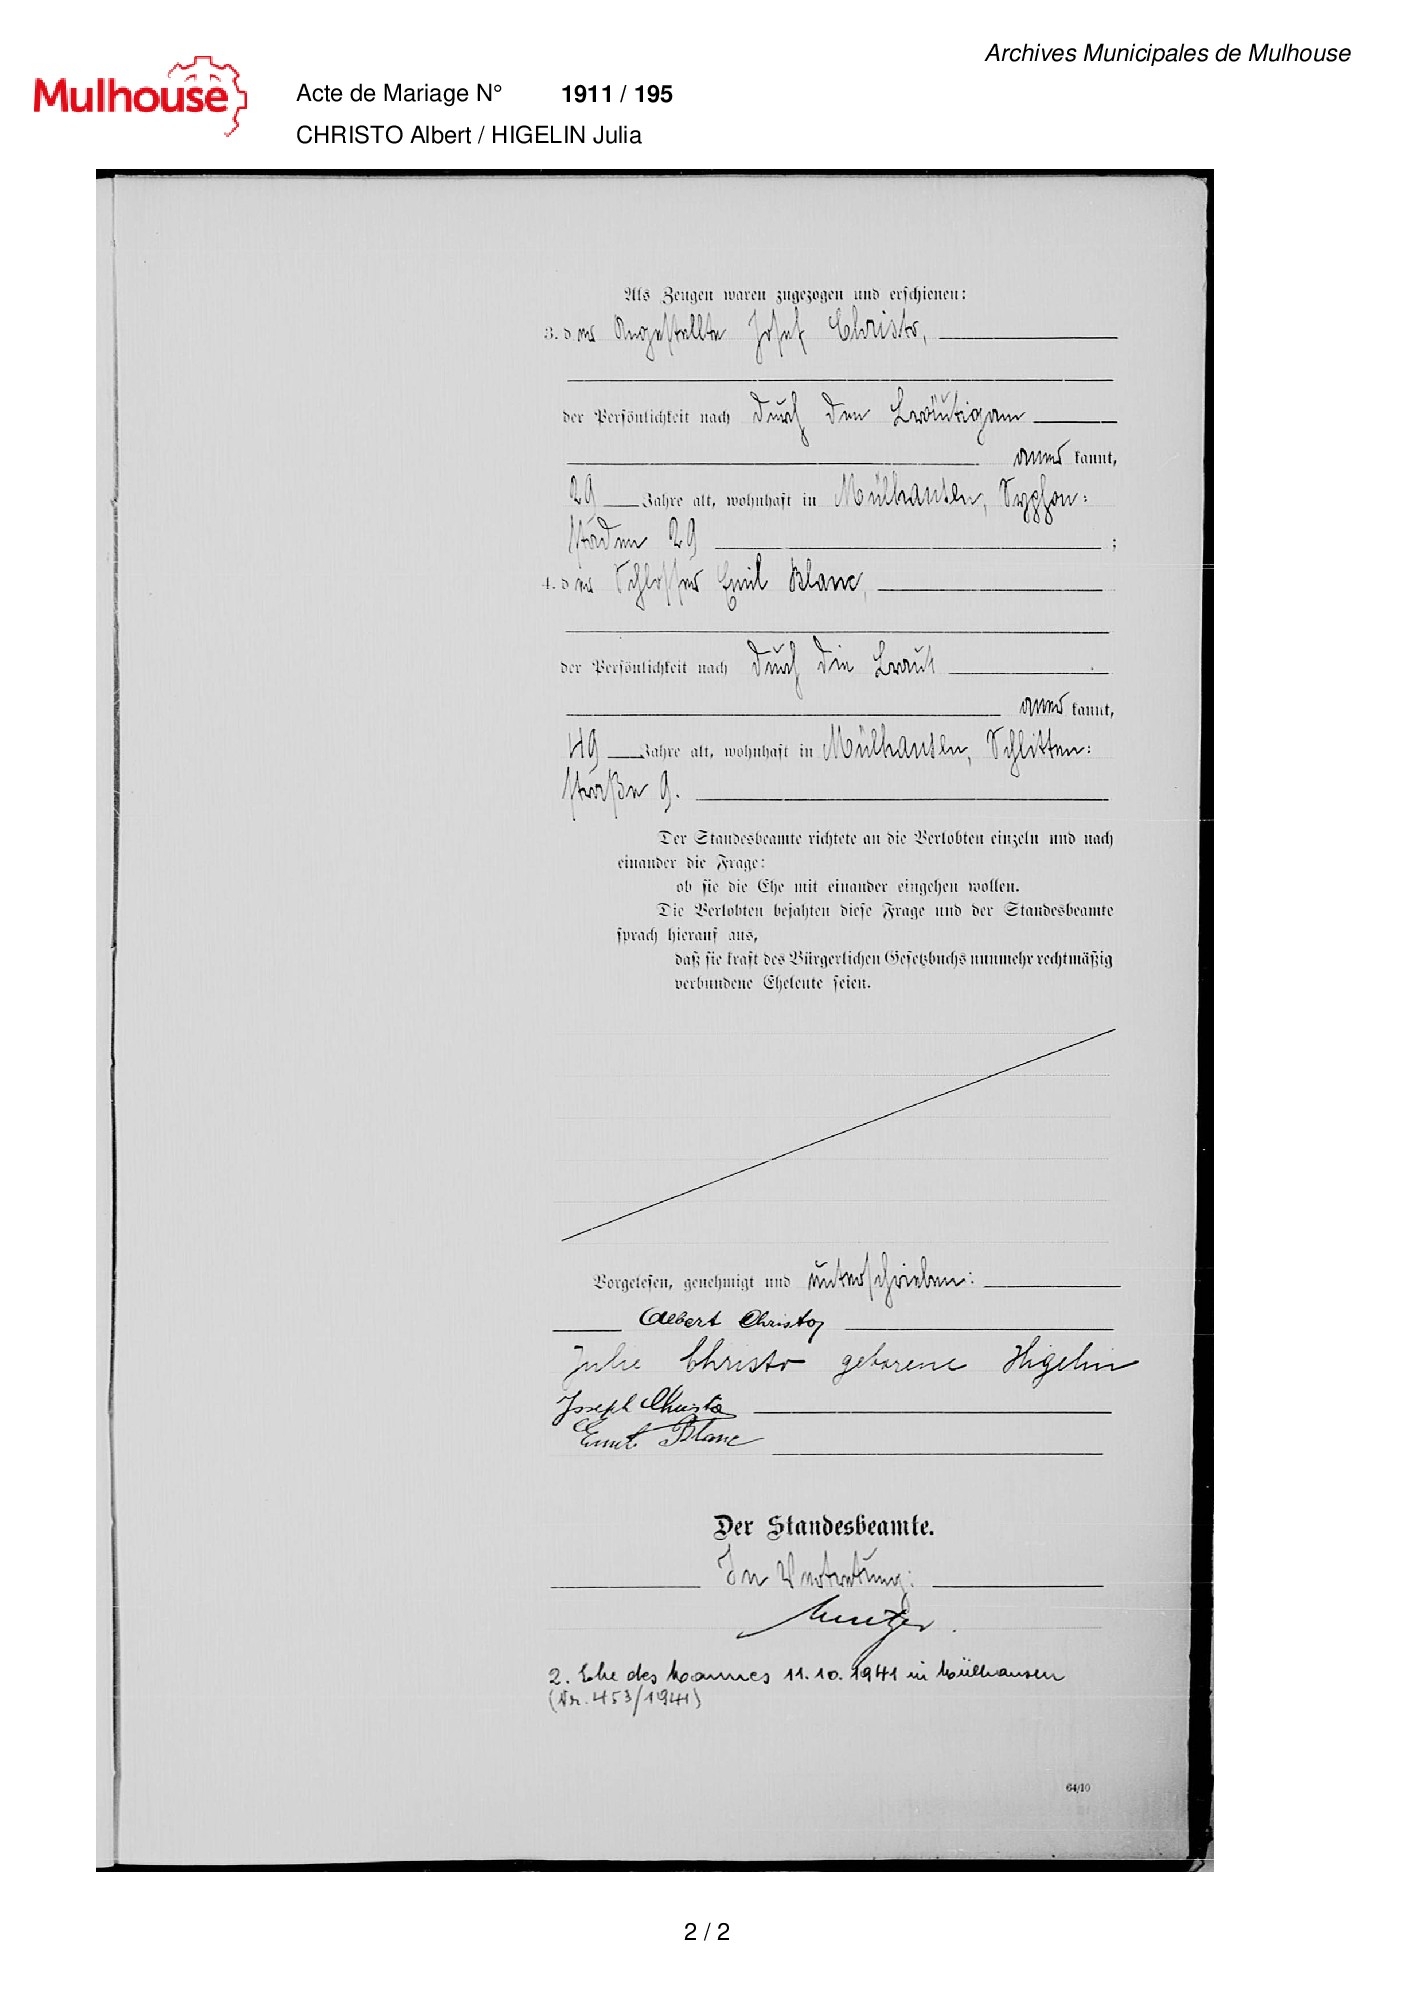 Archives Municipales de Mulhouse
Mulhouse
Acte de Mariage N° 1911 / 195
CHRISTO Albert / HIGELIN Julia
Als Zeugen waren zugezogen und erschienen:
3. der Angestellte Josef Christo,
der Persönlichkeit nach durch den Bräutigam
aner kannt,
29 Jahre alt, wohnhaft in Mülhausen,
staden 29 ;
4. der Schlosser Emil Blanc,
der Persönlichkeit nach durch die Braut
aner kannt,
49 Jahre alt, wohnhaft in Mülhausen, Schlitten:
straße 9.
Der Standesbeamte richtete an die Verlobten einzeln und nach
einander die Frage:
ob sie die Ehe mit einander eingehen wollen.
Die Verlobten bejahten diese Frage und der Standesbeamte
sprach hierauf aus,
daß sie kraft des Bürgerlichen Gesetzbuchs nunmehr rechtmäßig
verbundene Eheleute seien.
Vorgelesen, genehmigt und unterschrieben:
Albert Christo
Julie Christo geborene Higelin
Joseph Christo
Emil Blanc
Der Standesbeamte.
In Vertretung:
2. Ehe des Mannes 11.10.1941 in Mülhausen
(Nr. 453/1941)
64/10
2 / 2